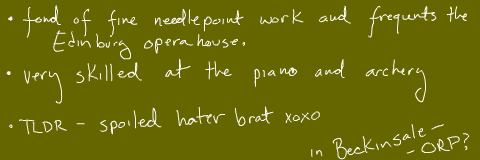 • fond of fine needlepoint work and frequents the
Edinburg opera house.
• very skilled at the piano and archery
• TLDR – spoiled hater brat xoxo
in Beckinsale –
– ORP?